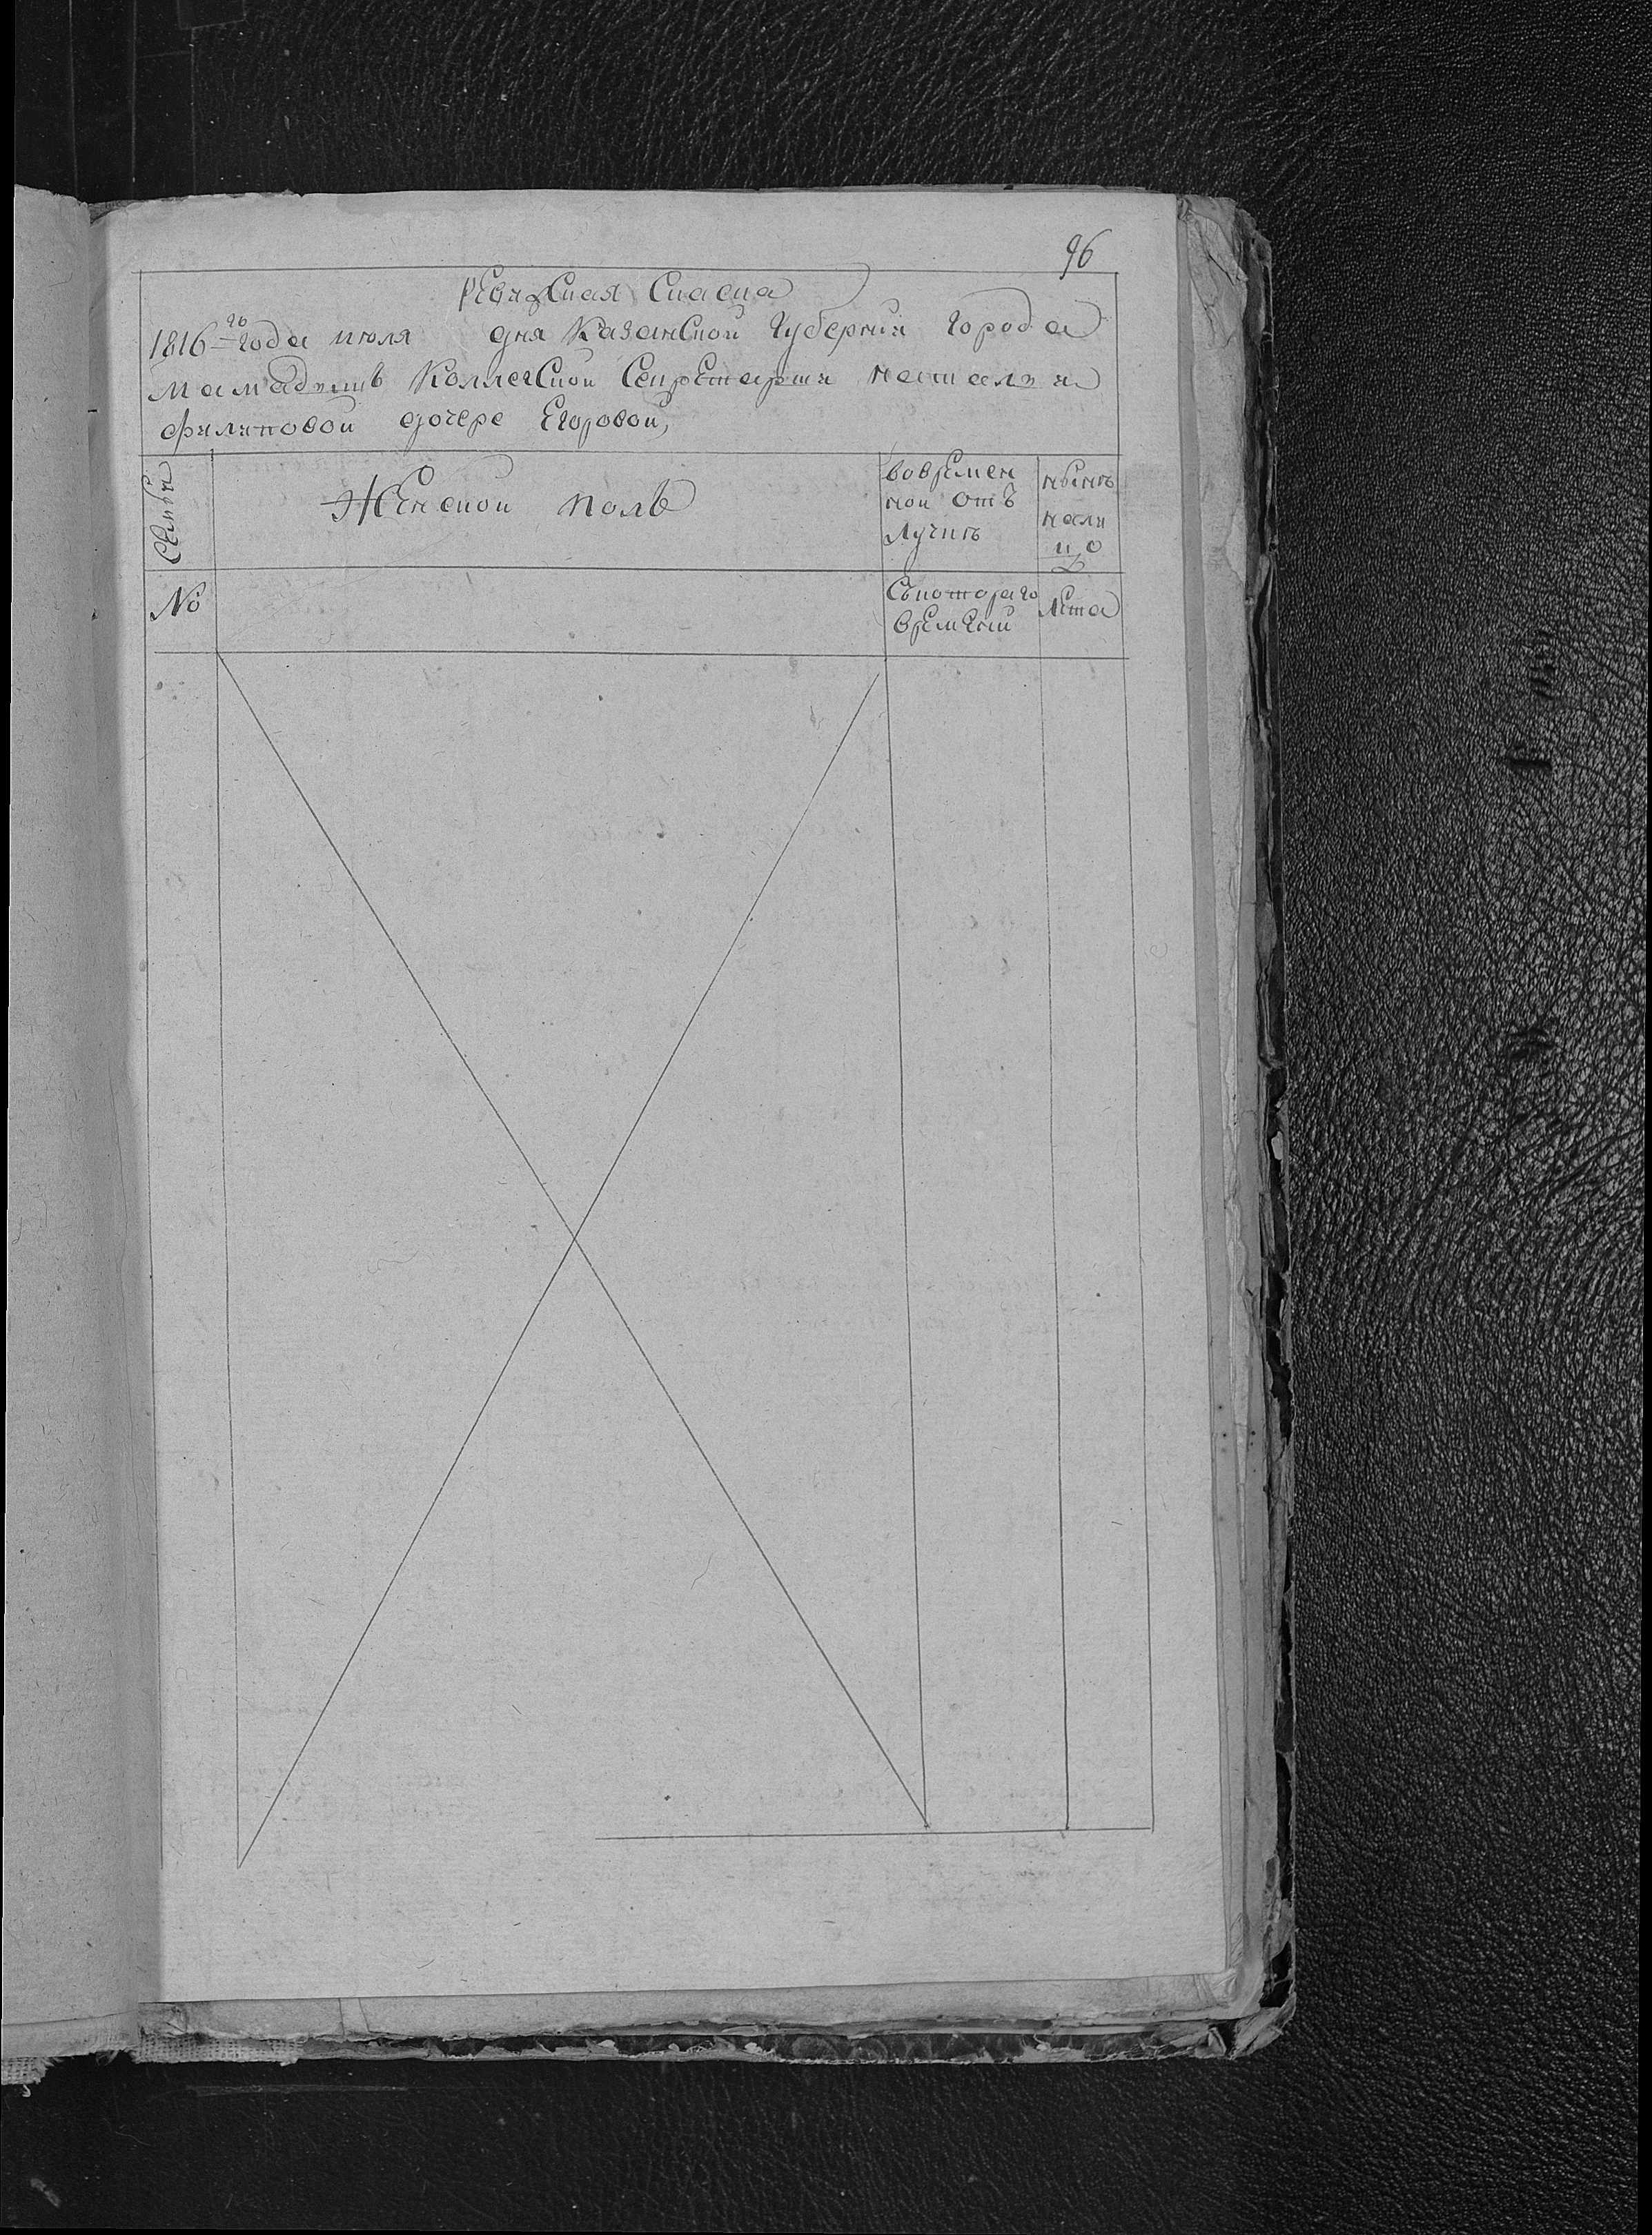 96
Ревижская Скаска
1816го года июля дня Казанской Губернии города
мамадышъ Коллегской Секретарши наталья
филиповой дочере Егоровой,
Семьи
Женской полъ
вовремен
ной отъ
лучкѣ
нынѣ
нали
цо
№
Скотораго
времени
Лета